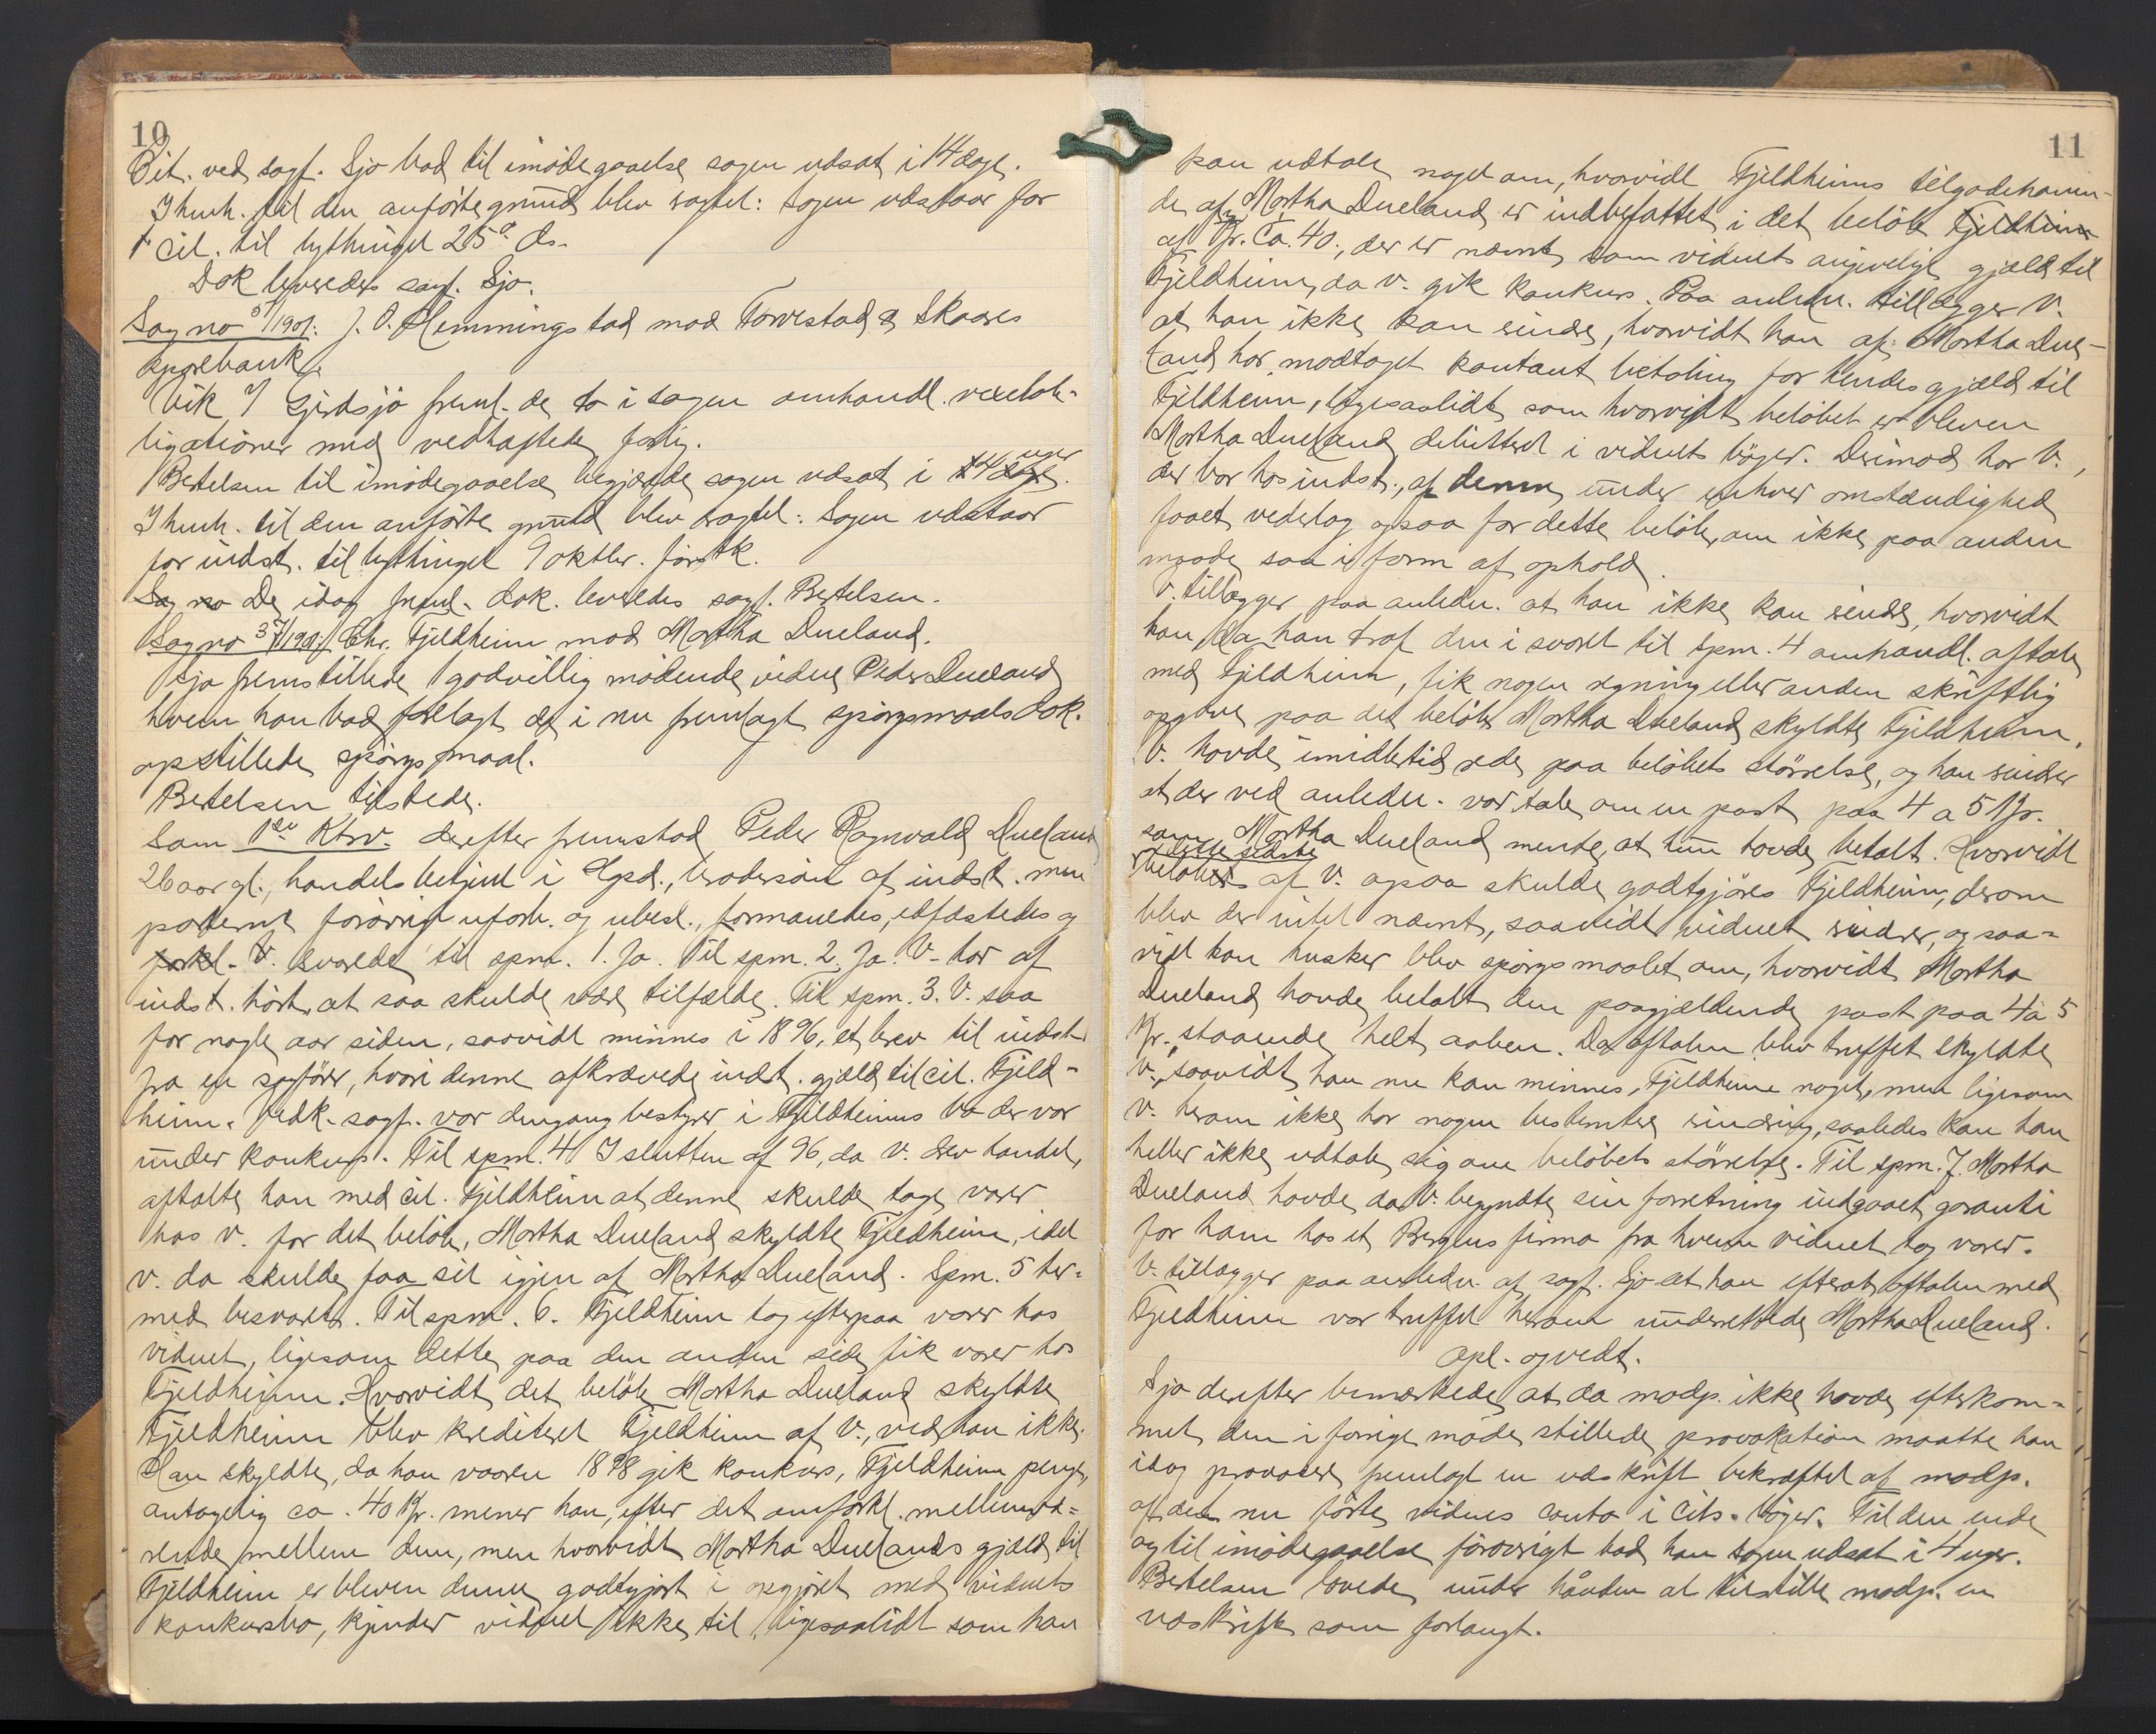 10
Cit. ved sagf. Sjo bad til imödegaaelse sagen udsat i 14 dage.
I henh. til den anförte grund blev vagtet: Sagen udstaar for
cit. til bythinget 25de ds.
Dok leveredes sagf. Sjo.
Sag no 51/1901: J. O. Hemmingstad mod Torvestad & Skaares
sparebank.
Vik f/ Gjerdsjö freml. de to i sagen omhandl. vexelob-
ligationer med vedhæftede forlig.
Bertelsen til imödegaaelse begjærede sagen udsat i 14 dage uger.
I henh. til den anförte grund blev vagtet: Sagen udstaar
for indst. til bythinget 9 oktbr. förstk.
Sag no De idag freml. dok. leveredes sagf. Bertelsen.
Sag no 37/1901: Chr. Fjeldheim mod Martha Dueland.
Sjo fremstillede godvillig mödende vidne Peder Dueland
hvem han bad forelagt de i nu fremlagt spörgsmaalsdok.
opstillede spörgsmaal.
Bertelsen tilstede.
Som 1ste Ktrv. derefter fremstod Peder Ragnvald Dueland
26 aar gl., handelsbetjent i Hgsd., brodersön af indst. men
paternt forövrigt uforb. og ubesl., formanedes, edfæstedes og
forkl. V. svarede til spm. 1. Ja. Til spm. 2. Ja. V. har af
indst. hört, at saa skulde være tilfælde. Til spm. 3. V. saa
for nogle aar siden, saavidt minnes i 1896, et brev til indst.
fra en sagförer, hvori denne afkrævede indst. gjæld til cit. Fjeld-
heim. Vedk. sagf. var dengang bestyrer i Fjeldheims bo der var
under konkurs. Til spm. 4 I slutten af 96, da V. drev handel,
aftalte han med cit. Fjeldheim at denne skulde tage varer
hos V. for det belöb, Martha Dueland skyldte Fjeldheim, idet
V. da skulde faa sit igjen af Martha Dueland. Spm. 5 her-
med besvaret. Til spm. 6. Fjeldheim tog efterpaa varer hos
vidnet, ligesom dette paa den anden side fik varer hos
Fjeldheim. Hvorvidt det belöb Martha Dueland skyldte
Fjeldheim blev krediteret Fjeldheim af V., ved han ikke.
Han skyldte, da han vaaren 1898 gik konkurs, Fjeldheim penge,
antagelig ca. 40 Kr. mener han, efter det omforkl. mellemvæ-
rende mellem dem, men hvorvidt Martha Duelands gjæld til
Fjeldheim er bleven denne godtgjort i opgjöret med vidnets
konkursbo, kjender vidnet ikke til, ligesaalidt som han
11
kan udtale noget om, hvorvidt Fjeldheims tilgodehaven-
de af Martha Dueland er indbefattet i det belöb Fjeldheim
af Kr. Ca. 40., der er nævnt som vidnets angivelige gjæld til
Fjeldheim, da V. gik konkurs. Paa anledn. tillægger V.
at han ikke kan erindre, hvorvidt han af Martha Due-
land har modtaget kontant betaling for hendes gjæld til
Fjeldheim, ligesaalidt som hvorvidt belöbet er bleven
Martha Dueland debitteret i vidnets böger. Derimod har V.,
der bor hos indst., af denne under enhver omstændighed
faaet vederlag ogsaa for dette belöb, om ikke paa anden
maade saa i form af ophold.
V. tillægger paa anledn. at han ikke kan erindre, hvorvidt
han, da han traf den i svaret til spm. 4 omhandl. aftale
med Fjeldheim, fik nogen regning eller anden skriftlig
opgave paa det belöb Martha Dueland skyldte Fjeldheim.
V. havde imidlertid rede paa belöbets störrelse, og han erindrer
at der ved anledn. var tale om en post paa 4 a 5 Kr.
som Martha Dueland mente, at hun havde betalt. Hvorvidt
dette sidste
belöbet af V. ogsaa skulde godtgjöres Fjeldheim, derom
blev der intet nævnt, saavidt vidnet erindrer, og saa-
vidt han husker blev spörgsmaalet om, hvorvidt Martha
Dueland havde betalt den paagjældende post paa 4 à 5
Kr. staaende helt aaben. Da aftalen blev truffet skyldte
V., saavidt han nu kan minnes, Fjeldheim noget, men ligesom
V. herom ikke har nogen bestemtere erindring, saaledes kan han
heller ikke udtale sig om belöbets störrelse. Til spm. 7. Martha
Dueland havde, da V. begyndte sin forretning indgaaet garanti
for ham hos et Bergens firma fra hvem vidnet tog varer.
V. tillægger paa anledn. af sagf. Sjo at han efterat aftalen med
Fjeldheim var truffet herom underrettede Martha Dueland.
Opl. og vedt.
Sjo derefter bemærkede, at da modp. ikke havde efterkom-
met den i forrige möde stillede provokation maatte han
idag provocere fremlagt en udskrift bekræftet af modp.
af det nu förte vidnes conto i cits. böger. Til den ende
og til imödegaaelse forövrigt bad han sagen udsat i 4 uger.
Bertelsen lovede under hånden at tilstille modp. en
udskrift som forlangt.